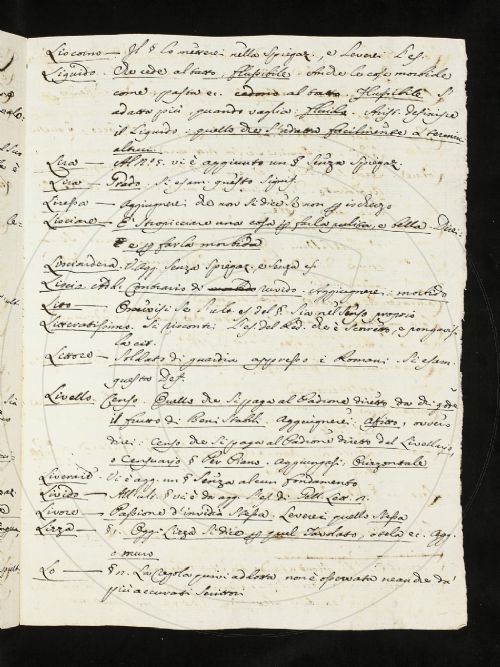 Liocorno — Il § lo metterei nella Spiegaz., e leverei l'es.
Liquido. Che cede al tatto, flussibile. anche le cose morbide
come pasta ec. cedono al tatto. Flussibile s'
adatta più quando vaglia: fluida. Arist. definisce
il Liquido: quello che s'adatta facilmente a termini
altrui.
Lira — Al N.° 5. vi è aggiunto un § senza spiegaz.
Lira — Prado. Si esam. questo signif.
Liressa — Aggiugnerei che non si dice se non per ischerzo
Lisciare — È stropicciare una cosa per farla pulita, e bella. Direi:
e per farla morbida
Lisciardiera. V. agg. senza spiegaz. e senza es.
Liscio Add. Contrario di ruvido. Aggiugnerei: morbido
Lito — se l'ult. es. del § sia nel senso proprio
Litteratissimo. Si riscontri l'es. del Red. che è scorretto, e pongavisi
la cit.
Littore — Soldato di guardia appresso i Romani. Si esam.
questa Def.
Livello. Censo. Quello che si paga al Padrone diretto da chi gode
il frutto di Beni stabili. Aggiugnerei: Affitto, ovvero
direi: Censo che si paga al Padrone diretto dal Livellario,
o Censuario § Per Piano. Aggiungasi: Orizzontale
Vi è agg. un § senza alcun fondamento
Livido — All'ult. § vi è da agg. l'es. di Lett. n.
Livore — Passione d'invidia stessa. Leverei quello stessa
Lizza — §1. Oggi Lizza si dice per quel Tavolato, o tela ec. Agg.
o muro
Lo — § n. La Regola quivi addotta non è osservata neanche da'
più accurati Scrittori